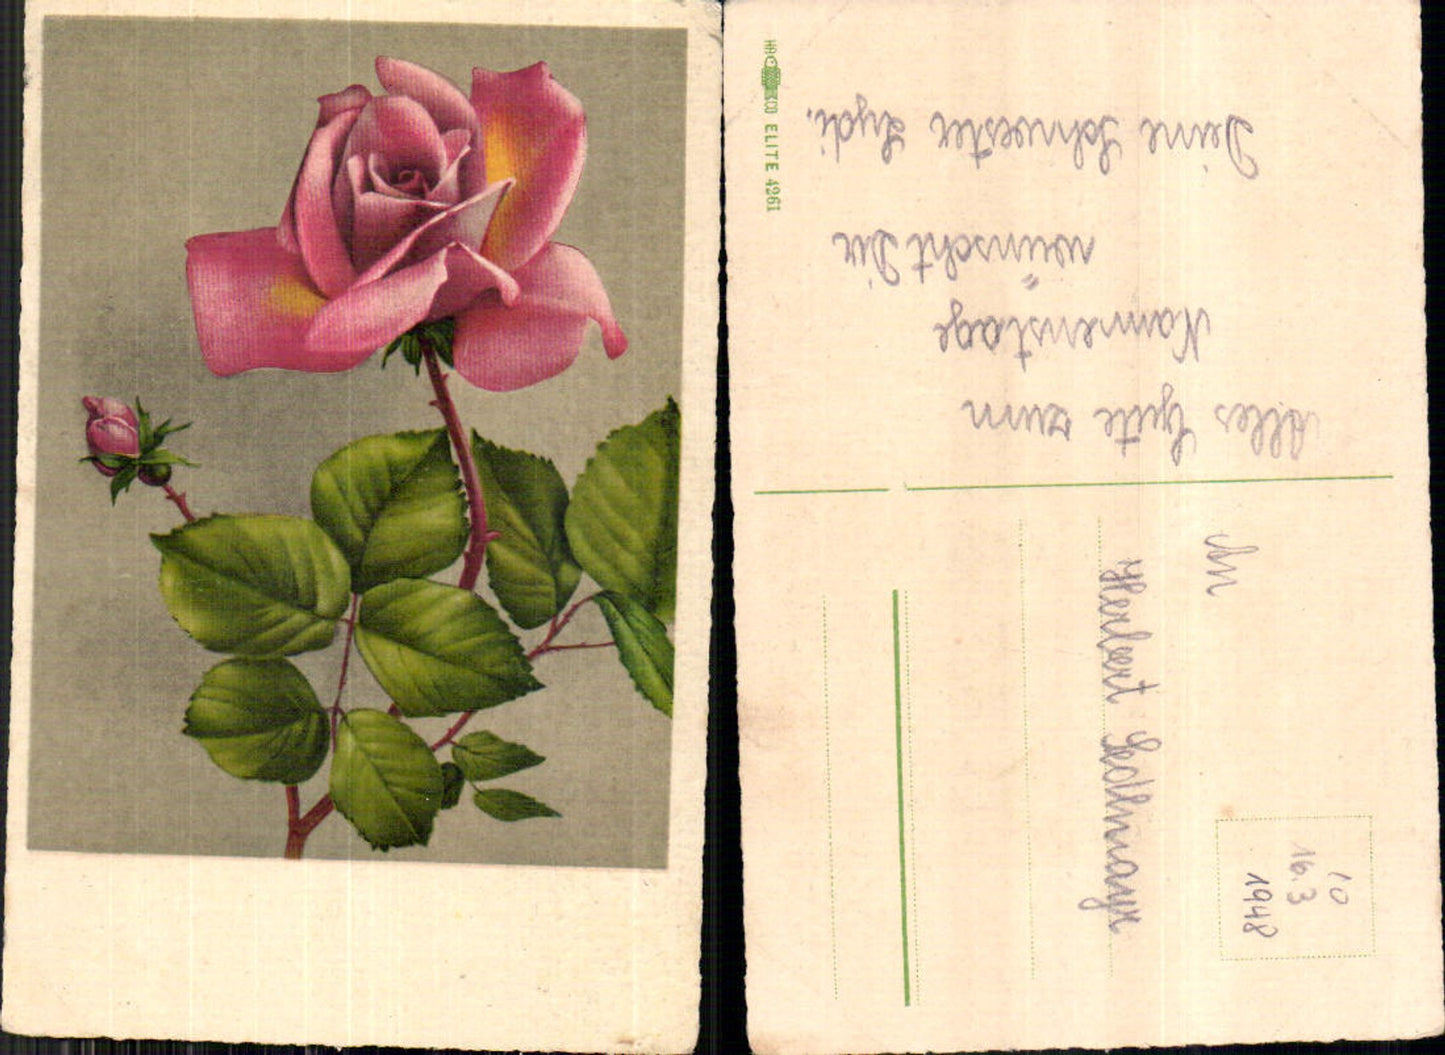 Alles Gute zum
Namenstage
wünscht Dir
Deine Schwester Lydi.
An
Herbert
10
16.3
1948
HACO
ELITE 4261